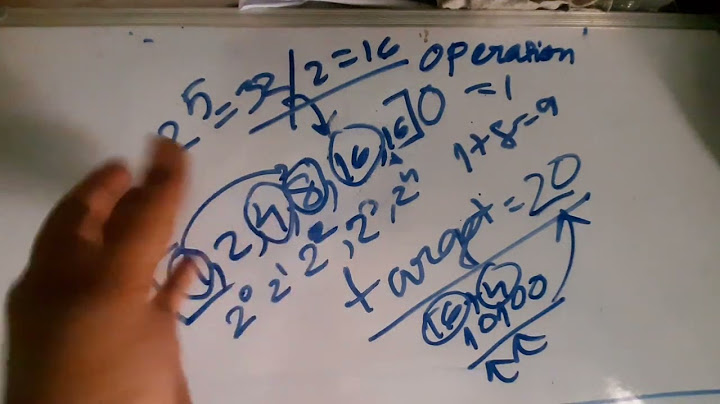 2^5 = 32 / 2 = 16 operation
1, 2, 4, 8, 16, 16] 0 = 1
1 + 8 = 9
2^0 2^1 2^2, 2^3, 2^4
target = 20
16, 4
10100